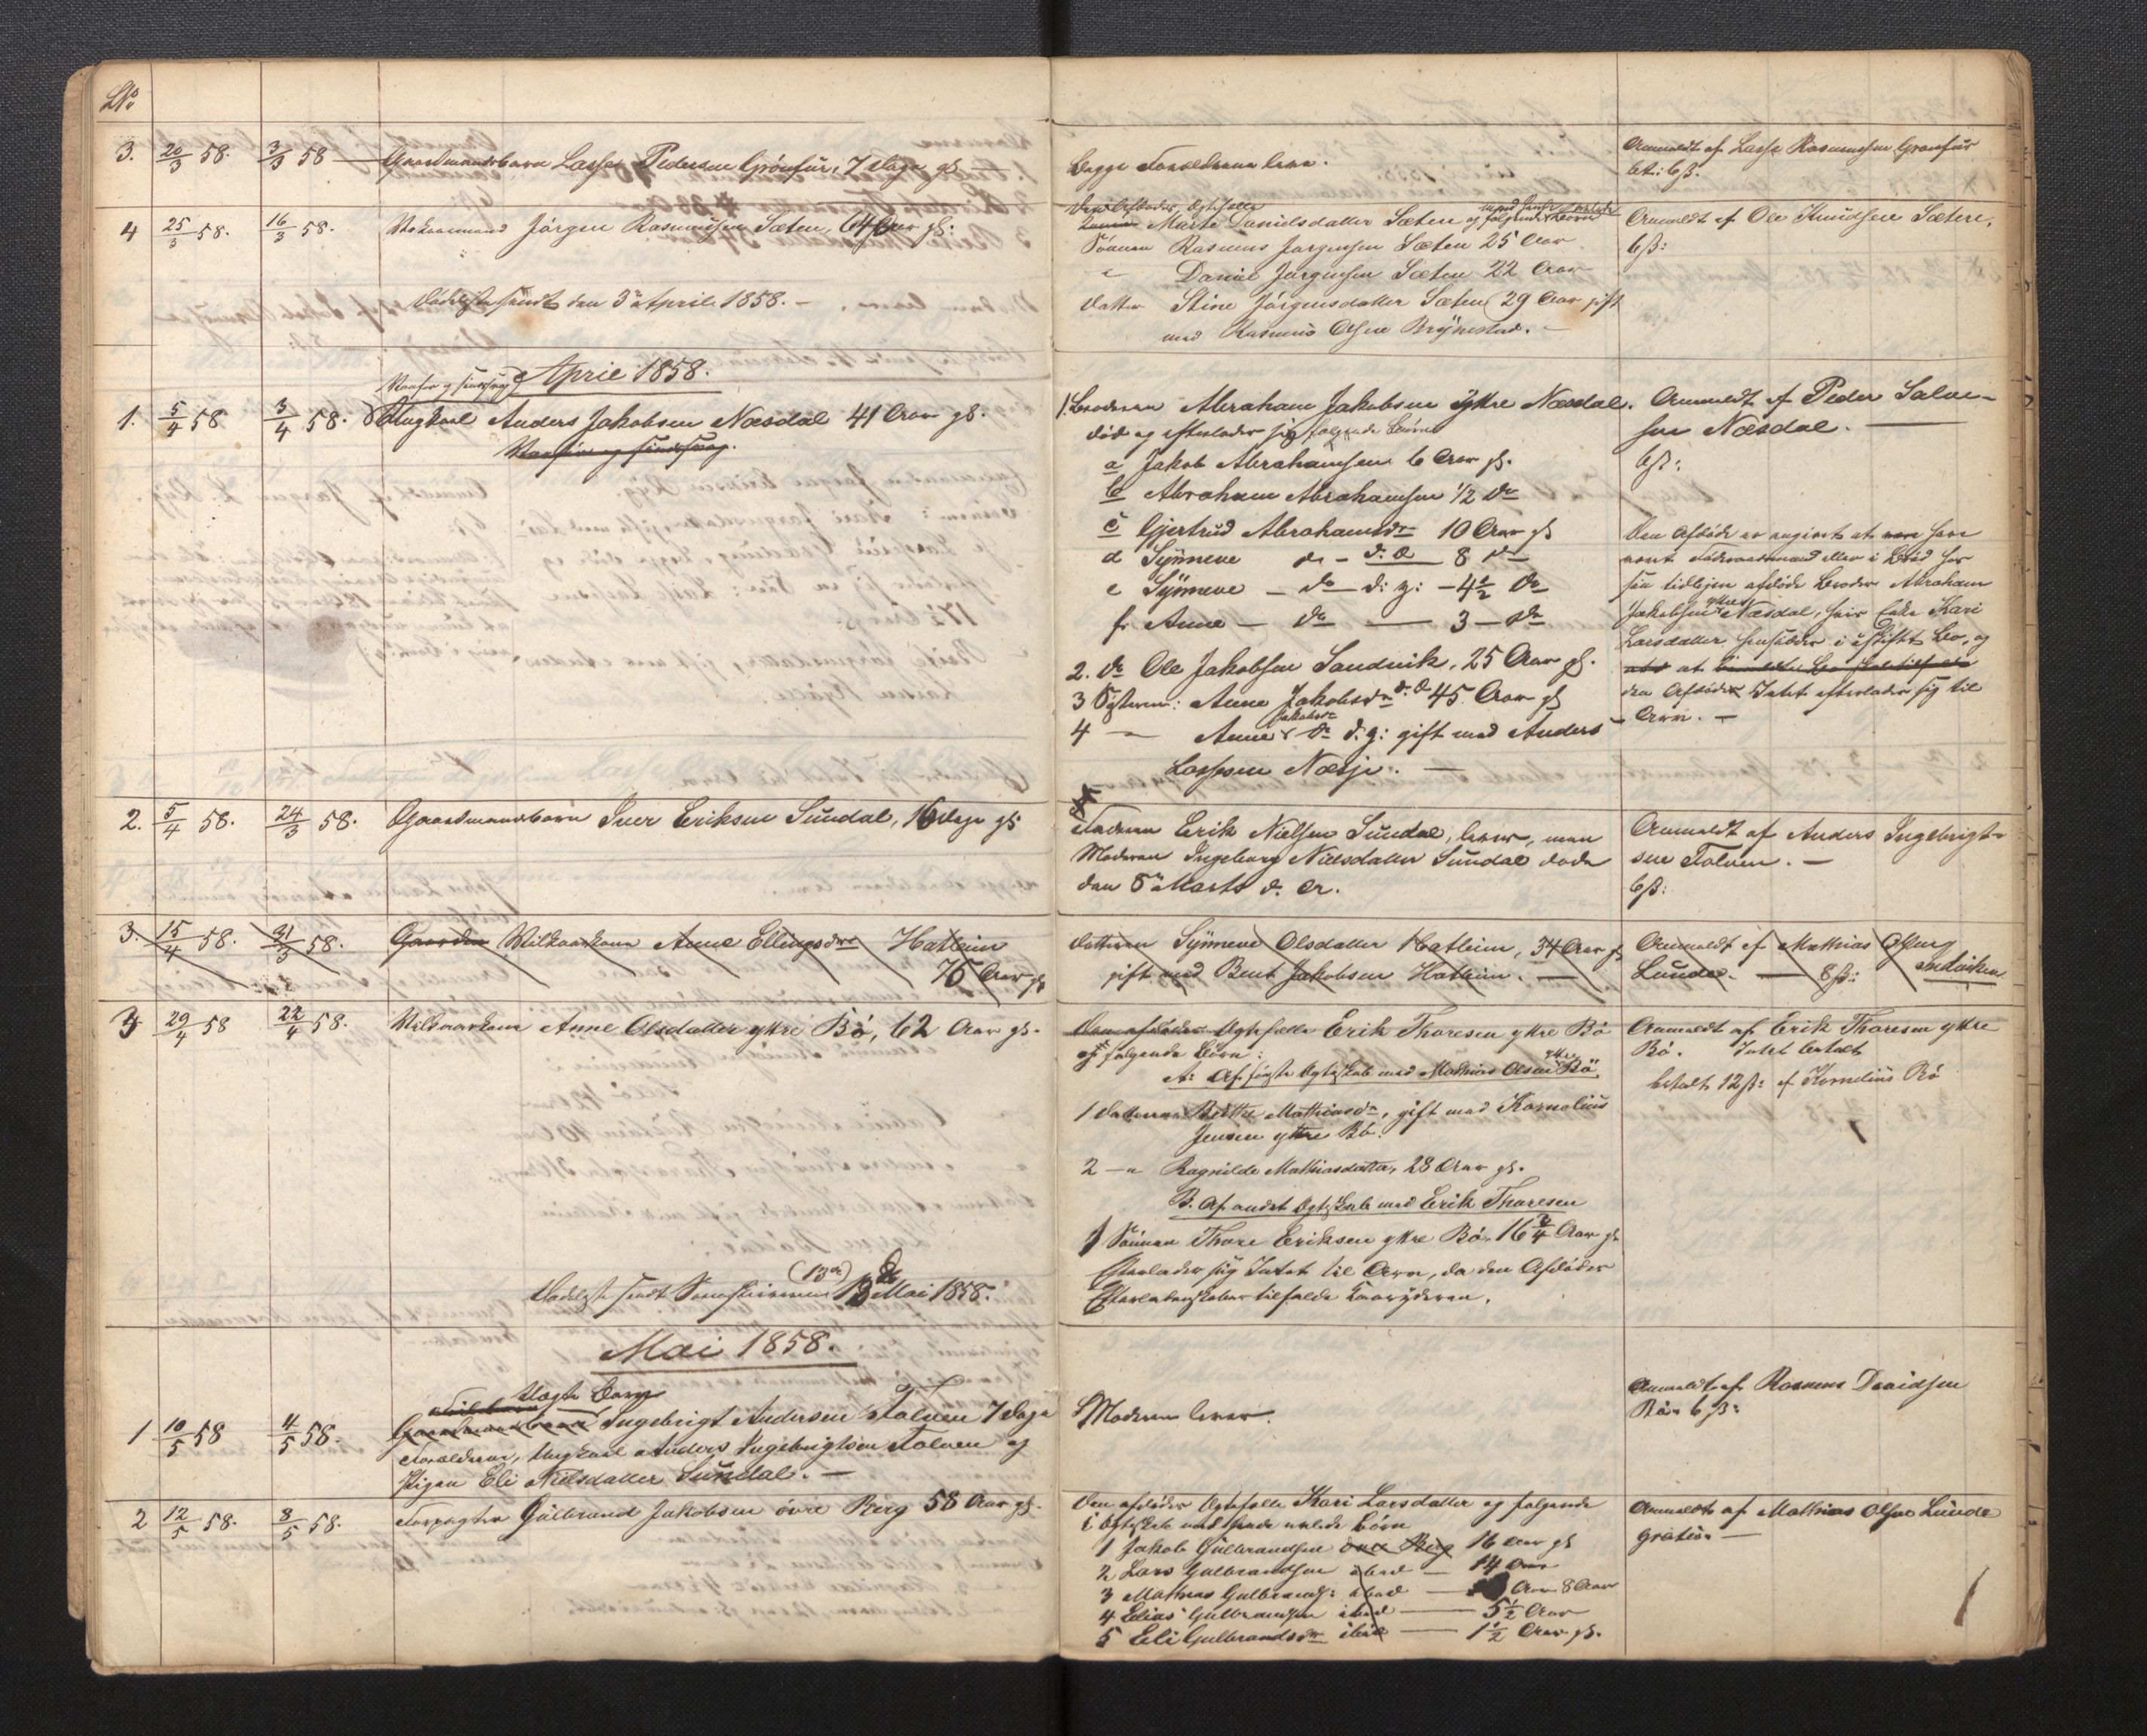 No
3. 20/3 58. 3/3 58 — Gaardmandsbarn Lasse Pedersen Grönfur, 7 Dage gl. —
Begge Forældrene leve.
Anmeldt af Lasse Rasmussen Grönfur
bet: 6ß.
4 25/3 58. 16/3 58. Vilkaarmand Jörgen Rasmussen Sæten, 64 Aar gl.
Marte Danielsdatter Sæten og følgende
Sönnen Rasmus Jørgensen Sæten 25 Aar
" Daniel Jørgensen Sæten 22 Aar
Datter Stine Jörgensdatter Sæten 29 Aar gift
med Rasmus Olsen Brynestad. —
Anmeldt af Ole Knudsen Sætere.
6ß:
Dødsliste sendt den 3de April 1858. —
April 1858.
1. 5/4 58 3/4 58. Ungkarl Anders Jakobsen Næsdal 41 Aar gl.
Vanför og sindssvag.
1. Broderen Abraham Jakobsen Yttre Næsdal.
död og efterlader sig følgende Börn
a Jakob Abrahamsen 6 Aar gl.
b Abraham Abrahamsen 1/2 do
c Gjertrud Abrahamsdr 10 Aar gl
d Synneve do d. æ 8 do
e Synneve — do — d: y: — 4 1/2 do
f. Anne — do — 3 — do
2. do Ole Jakobsen Sandvik, 25 Aar gl.
3 Søsteren: Anne Jakobsdr d. æ 45 Aar gl
4 — Anne Jakobsdr d. y: gift med Anders
Lassesen Næsje. —
Anmeldt af Peder Salve-
sen Næsdal. —
6ß:
Den Afdöde er angivet at have
været Föderaadsmand eller i Bröd hos
sin tidligere afdöde Broder Abraham
Jakobsen yttre Næsdal, hvis Enke Kari
Larsdatter hensidder i uskiftet Bo, og
at
den Afdöde Intet efterlader sig til
Arv. —
2. 5/4 58. 24/3 58. Gaardmandsbarn Iver Eriksen Sundal, 16 Dage gl.
Faderen Erik Nielsen Sundal, lever, men
Moderen Ingeborg Nielsdatter Sundal döde
den 8de Marts d. A.
Anmeldt af Anders Ingebrigt-
sen Tolven. —
6ß:
3. 15/4 58. 31/3 58. Vilkaarkone Anne Ellingsdr Hatleim
75 Aar gl
Datteren Synneve Olsdatter Hatleim, 34 Aar gl
gift med Bent Jakobsen Hatleim. —
Anmeldt af Mathias Olsen
Lunde. — 8ß:
3 29/4 58 22/4 58. Vilkaarkone Anne Olsdatter yttre Bö, 62 Aar gl.
Den afdödes Ægtefælle Erik Thoresen yttre Bö
og følgende Börn:
A: Af förste Ægteskab med Mathias Olsen yttre Bö.
1 Datteren Brithe Mathiasdr, gift med Kornelius
Jensen yttre Bö.
2 —" Ragnilde Mathiasdatter, 28 Aar gl.
B. Af andet Ægteskab med Erik Thoresen
1 Sönnen Thore Eriksen yttre Bö. 16 3/4 Aar gl
Efterlader sig Intet til Arv, da den Afdödes
Efterladenskaber tilfalde Kaaryderen.
Anmeldt af Erik Thoresen yttre
Bö. Intet betalt
betalt 12ß: af Kornelius Bö
Dødsliste sendt Sorenskriveren (13de) 13de Mai 1858.
Mai 1858.
Uægte Barn
1 10/5 58 4/5 58. Gaardmandsbarn Ingebrigt Andersen Tolven 7 Dage
Forældrene, Ungkarl Anders Ingebrigtsen Tolven og
Pigen Eli Nielsdatter Sundal. —
Moderen lever.
Anmeldt af Rasmus Davidsen
Bö. 6ß:
2 12/5 58. 8/5 58. Forpagter Gulbrand Jakobsen övre Berg 58 Aar gl.
Den afdödes Ægtefælle Kari Larsdatter og følgende
i Ægteskab med hende avlede Börn
1 Jakob Gulbrandsen övre Berg 16 Aar gl
2 Lars Gulbrandsen ibid — 14 Aar
3 Mathias Gulbrands: ibid — Aar 8 Aar
4 Elias Gulbrandsen ibid — 5 1/2 Aar
5 Eli Gulbrandsdr ibid — 1 1/2 Aar gl.
Anmeldt af Mathias Olsen Lunde
gratis. —